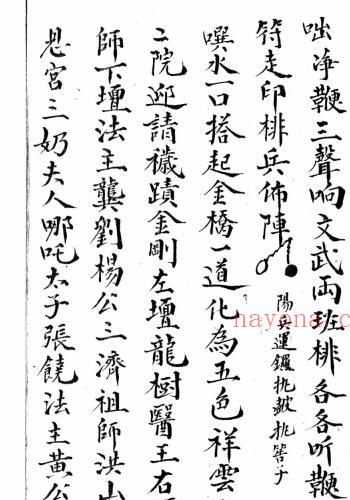 咄净鞭三聲响文武両班排各各听鞭
符走印排兵佈陣
陽兵運鑼扰皷扰筶子
噀水一口搭起金橋一道化為五色祥雲
二院迎請穢蹟金剛左壇龍樹醫王右
師下壇法主龔劉楊公三濟祖師洪山
宮三奶夫人哪吒太子張饒法主黄公